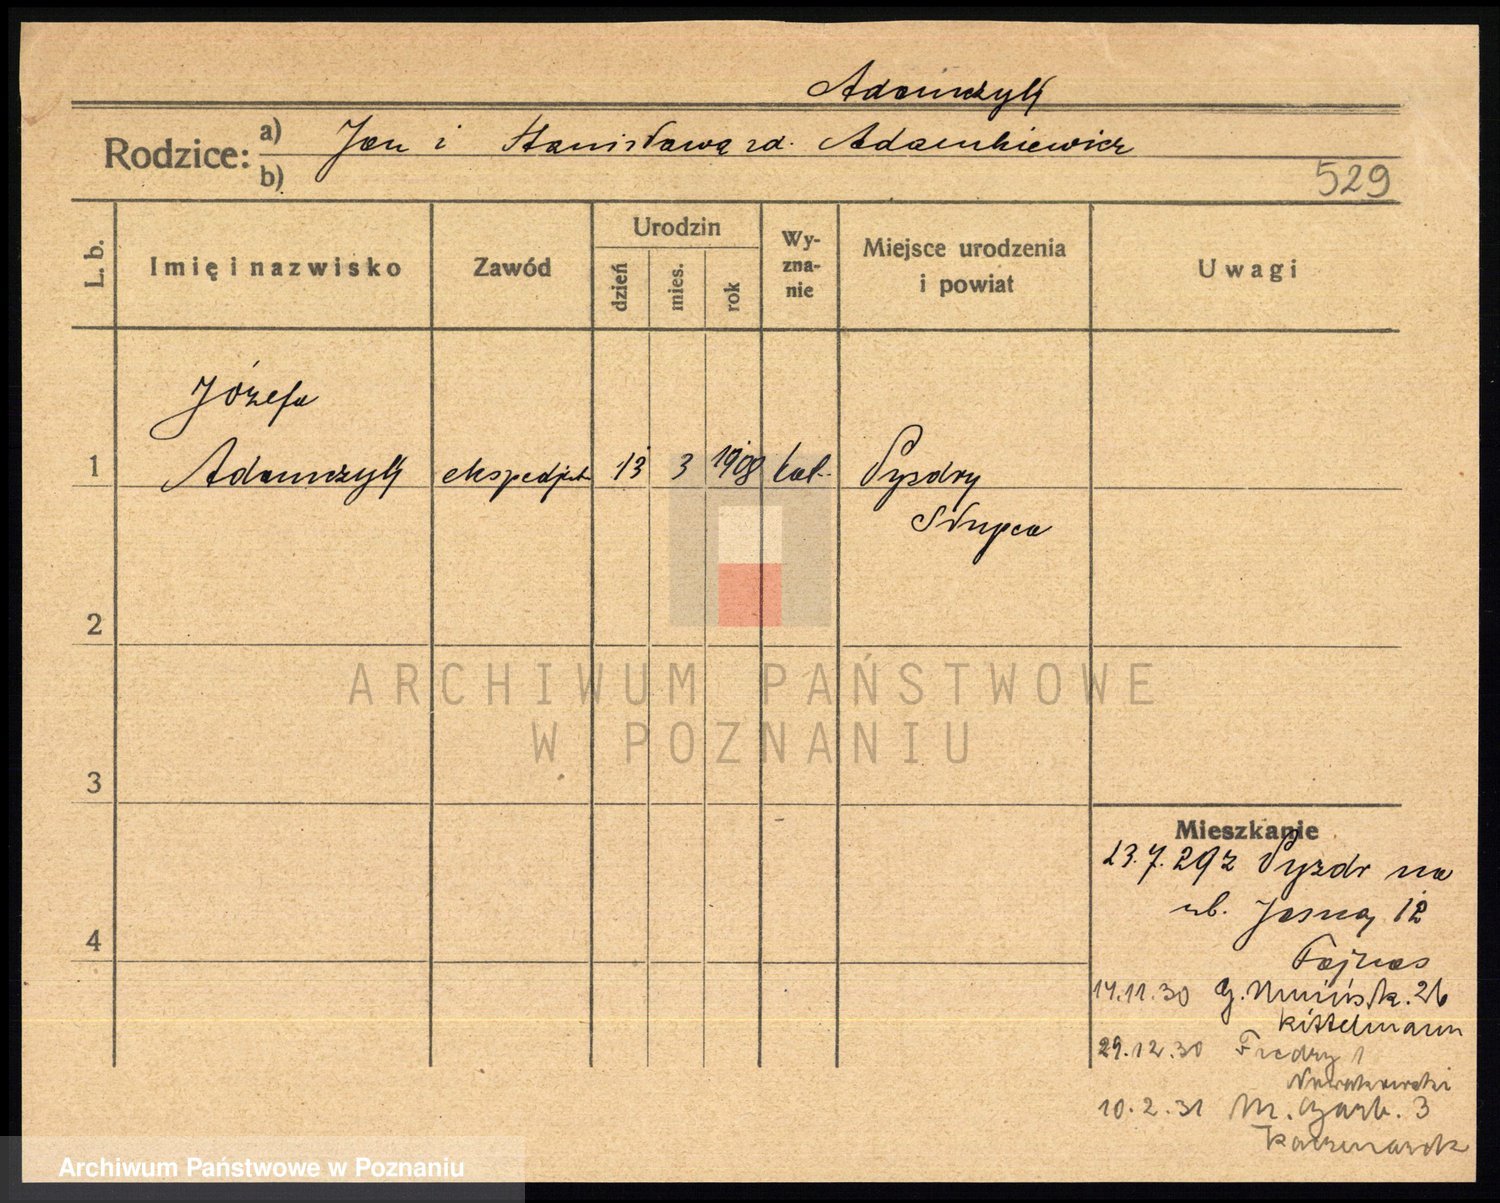 Adamczyk
Rodzice: a) Jan i Stanisława zd. Adamkiewicz
b)
529
L. b.
Imię i nazwisko
Zawód
Urodzin
dzień
mies.
rok
Wy-
zna-
nie
Miejsce urodzenia
i powiat
Uwagi
Józefa
1 Adamczyk ekspedjent 13 3 1908 kat. Pyzdry
Słupca
2
3
4
ARCHIWUM PAŃSTWOWE
W POZNANIU
Mieszkanie
23.7.29 z Pyzdr na
ul. Jasną 12
14.11.30 26
Kittelmann
29.12.30 Fredry 1
Nowakowski
10.2.31 M. Garb. 3
Kaczmarek
Archiwum Państwowe w Poznaniu